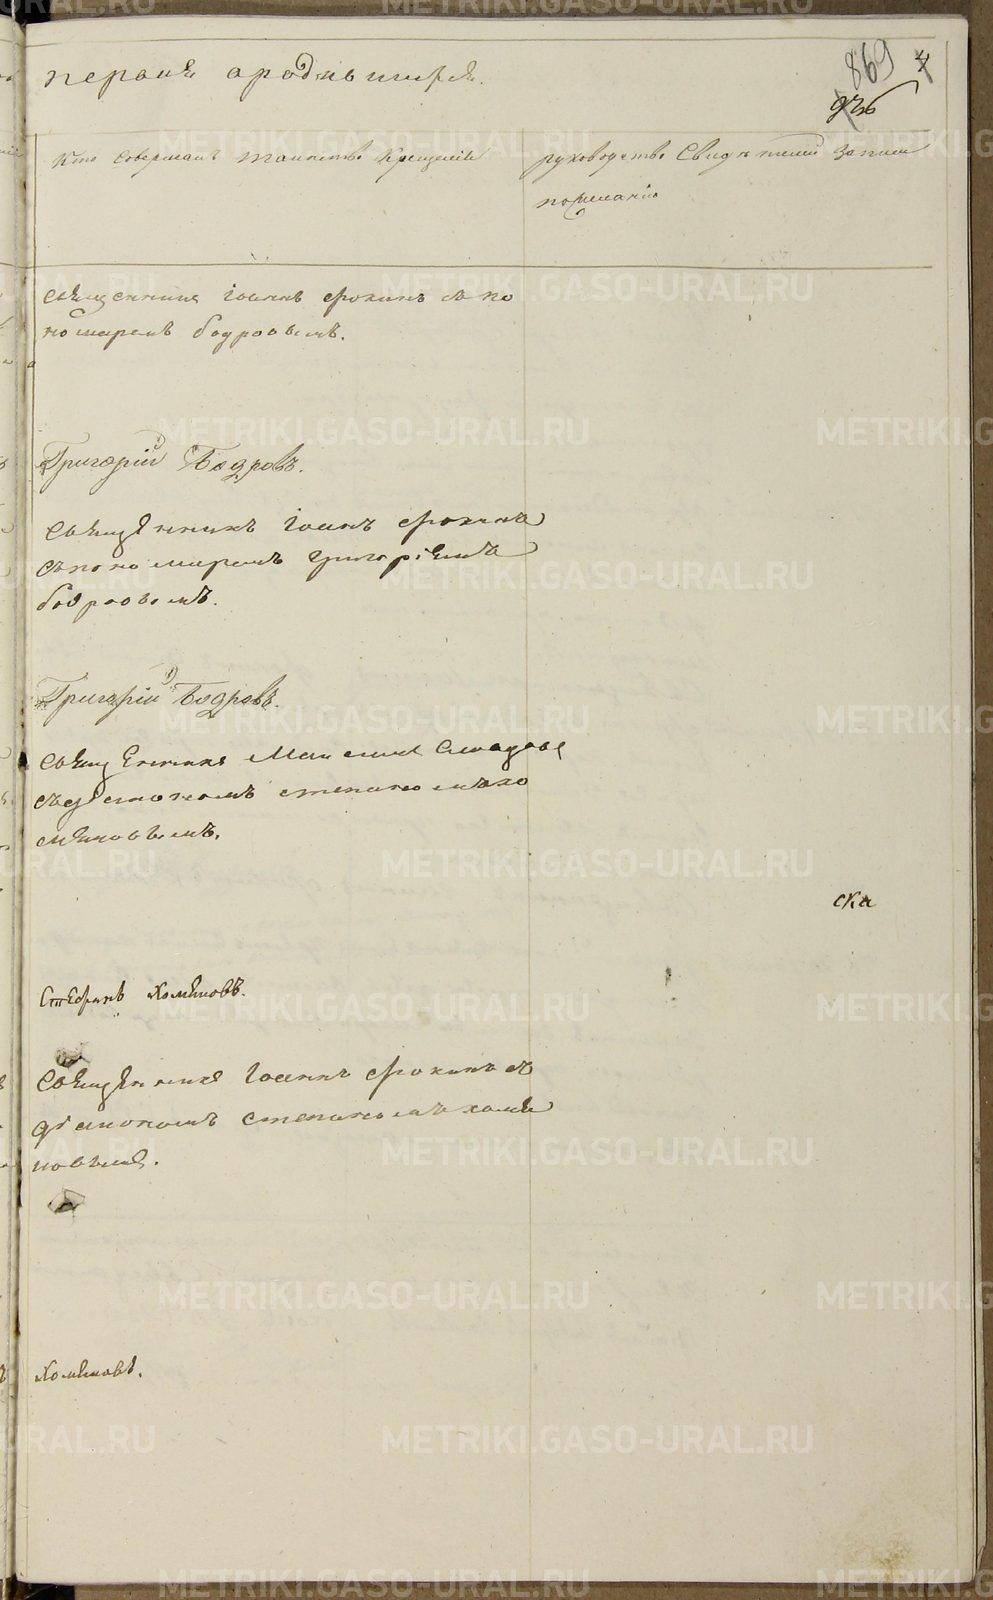 первая о родившихся.
869 4
926
Кто совершалъ таинство крещенія
рукоприкладство свидѣтелей записи
по желанію
священникъ Іоаннъ Фокинъ съ по
номаремъ бодровымъ.
Григорій Бодровъ.
священникъ Іоанъ Фокинъ
съ пономаремъ григоріемъ
бодровымъ.
Григорій Бодровъ.
священникъ
съ діакономъ степаномъ хо
мяковымъ.
ска
Стефанъ Хомяковъ.
священникъ Іоаннъ Фокинъ съ
діакономъ степаномъ хомя
ковымъ.
Хомяковъ.
METRIKI.GASO-URAL.RU